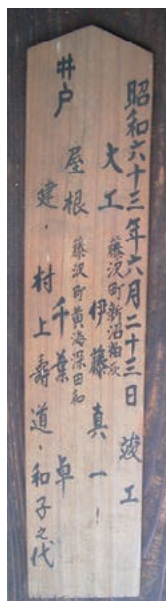 昭和六十三年六月二十三日 竣工
大工 藤沢町新沼 伊藤真一
屋根 藤沢町黄海深田和 千葉 卓
井戸
建・村上壽道・和子之代